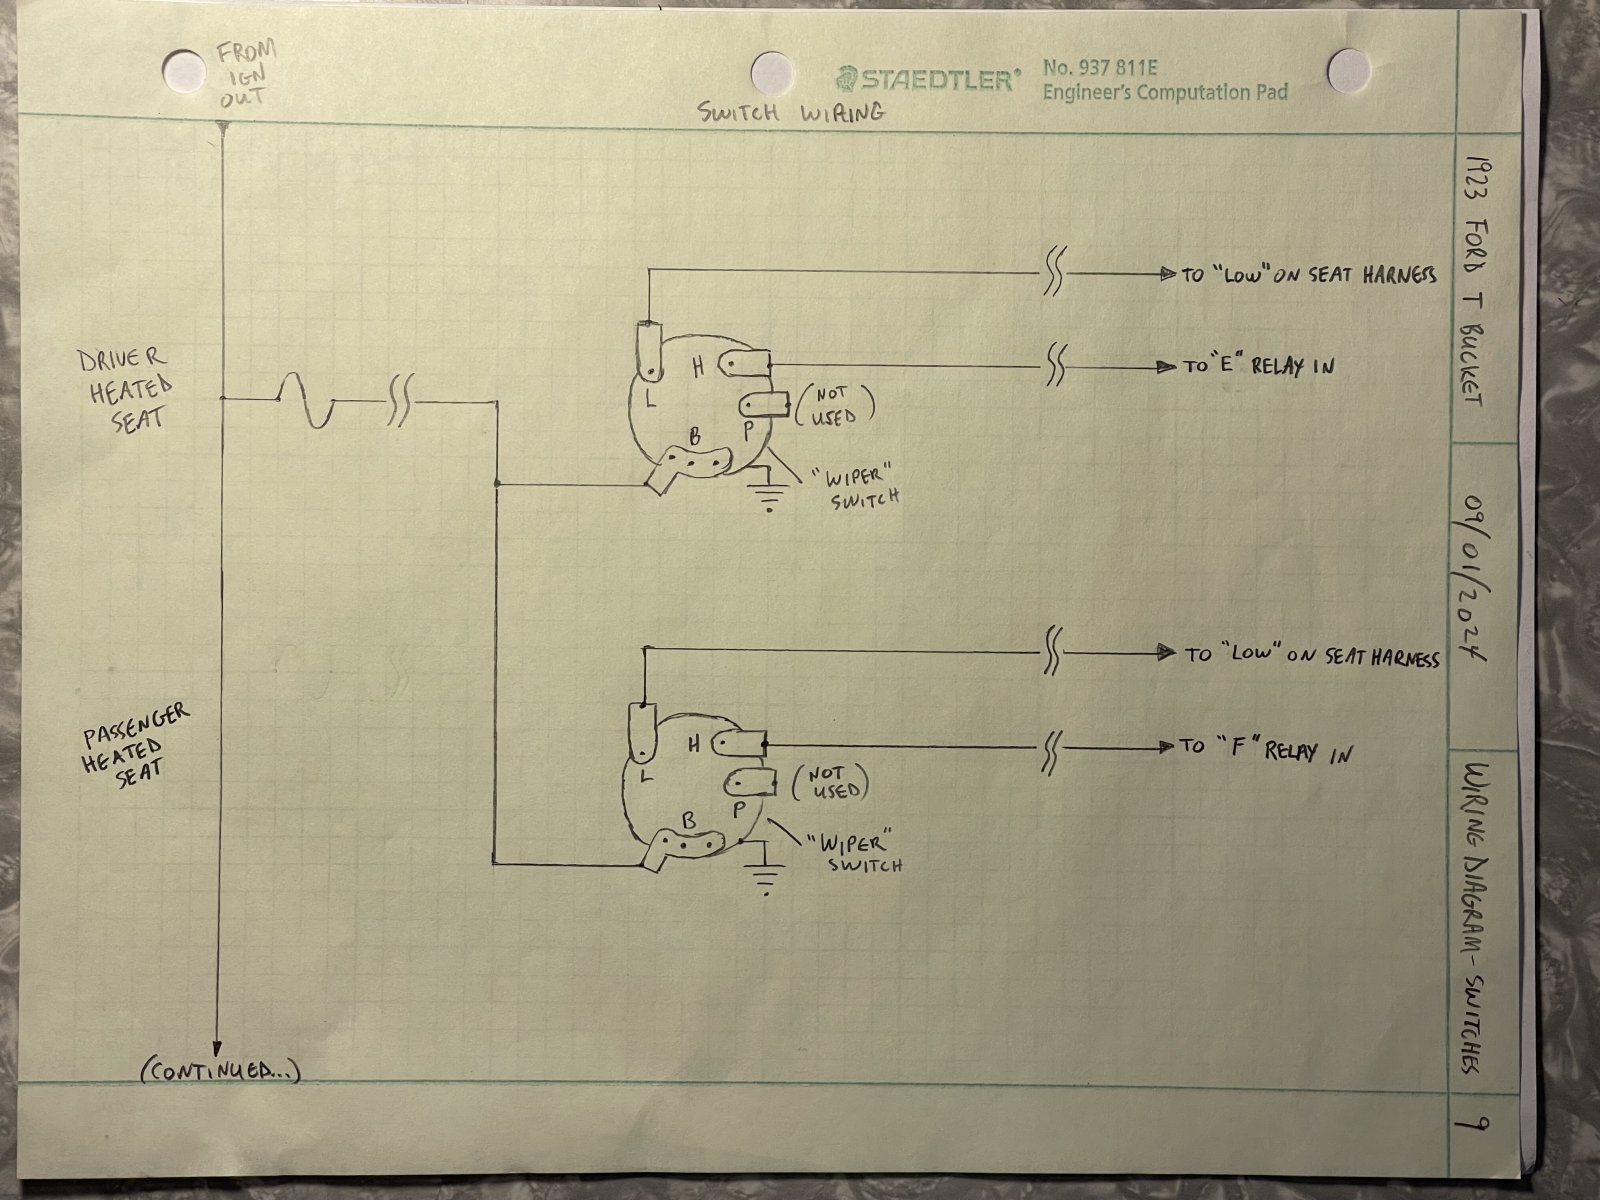 FROM
IGN
OUT
STAEDTLER®
No. 937 811E
Engineer's Computation Pad
SWITCH WIRING
1923 FORD T BUCKET
09/01/2024
WIRING DIAGRAM- SWITCHES
9
TO "LOW" ON SEAT HARNESS
DRIVER
HEATED
SEAT
H
TO "E" RELAY IN
L
(NOT
USED)
P
B
"WIPER"
SWITCH
TO "LOW" ON SEAT HARNESS
PASSENGER
HEATED
SEAT
H
TO "F" RELAY IN
L
(NOT
USED)
P
B
"WIPER"
SWITCH
(CONTINUED...)